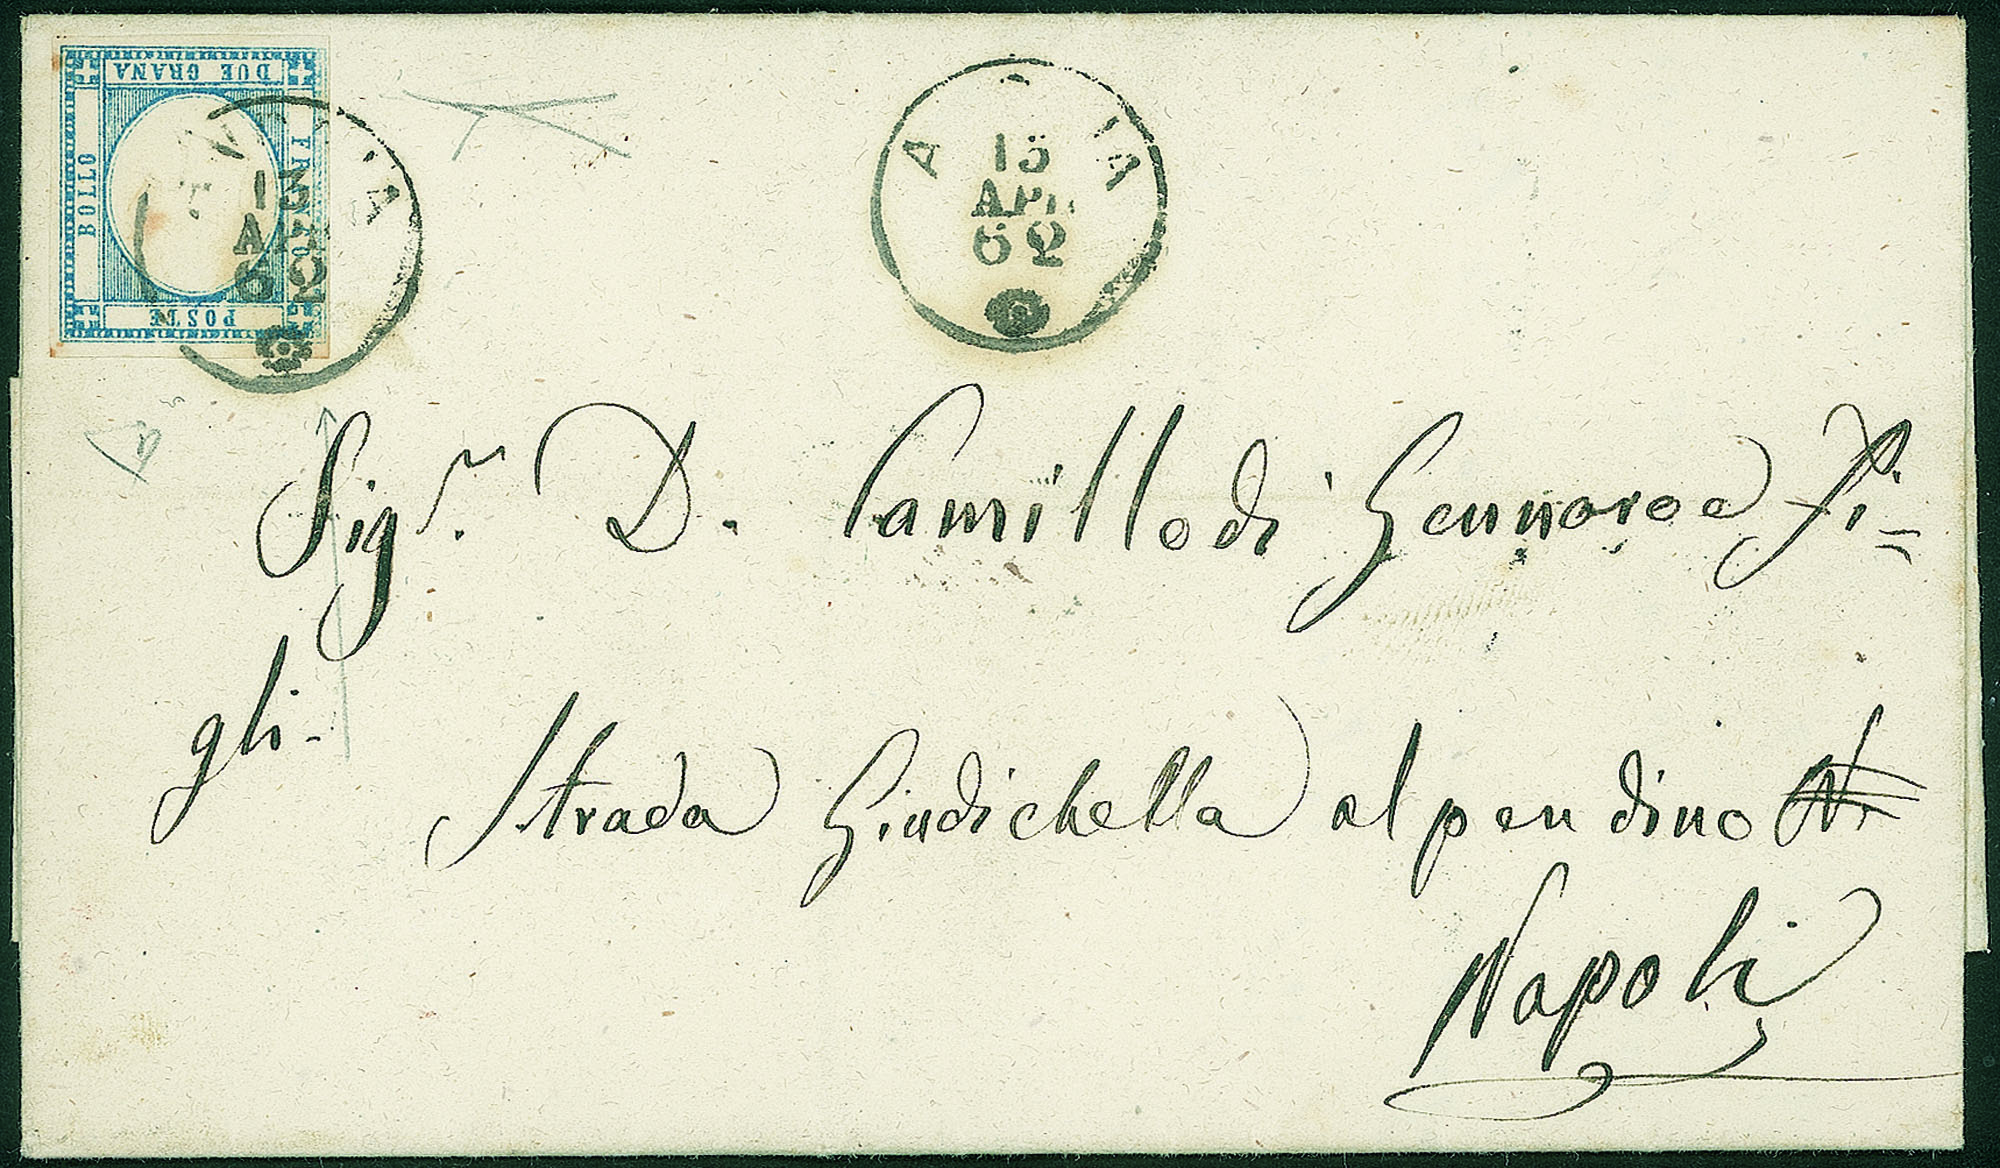 DUE GRANA
BOLLO
FRANCO
POSTE
13
62
A IA
15
APR
62
Sig.r D. Camillo di Gennaro e Fi=
gli-
Strada Giudichella al pendino N.
Napoli